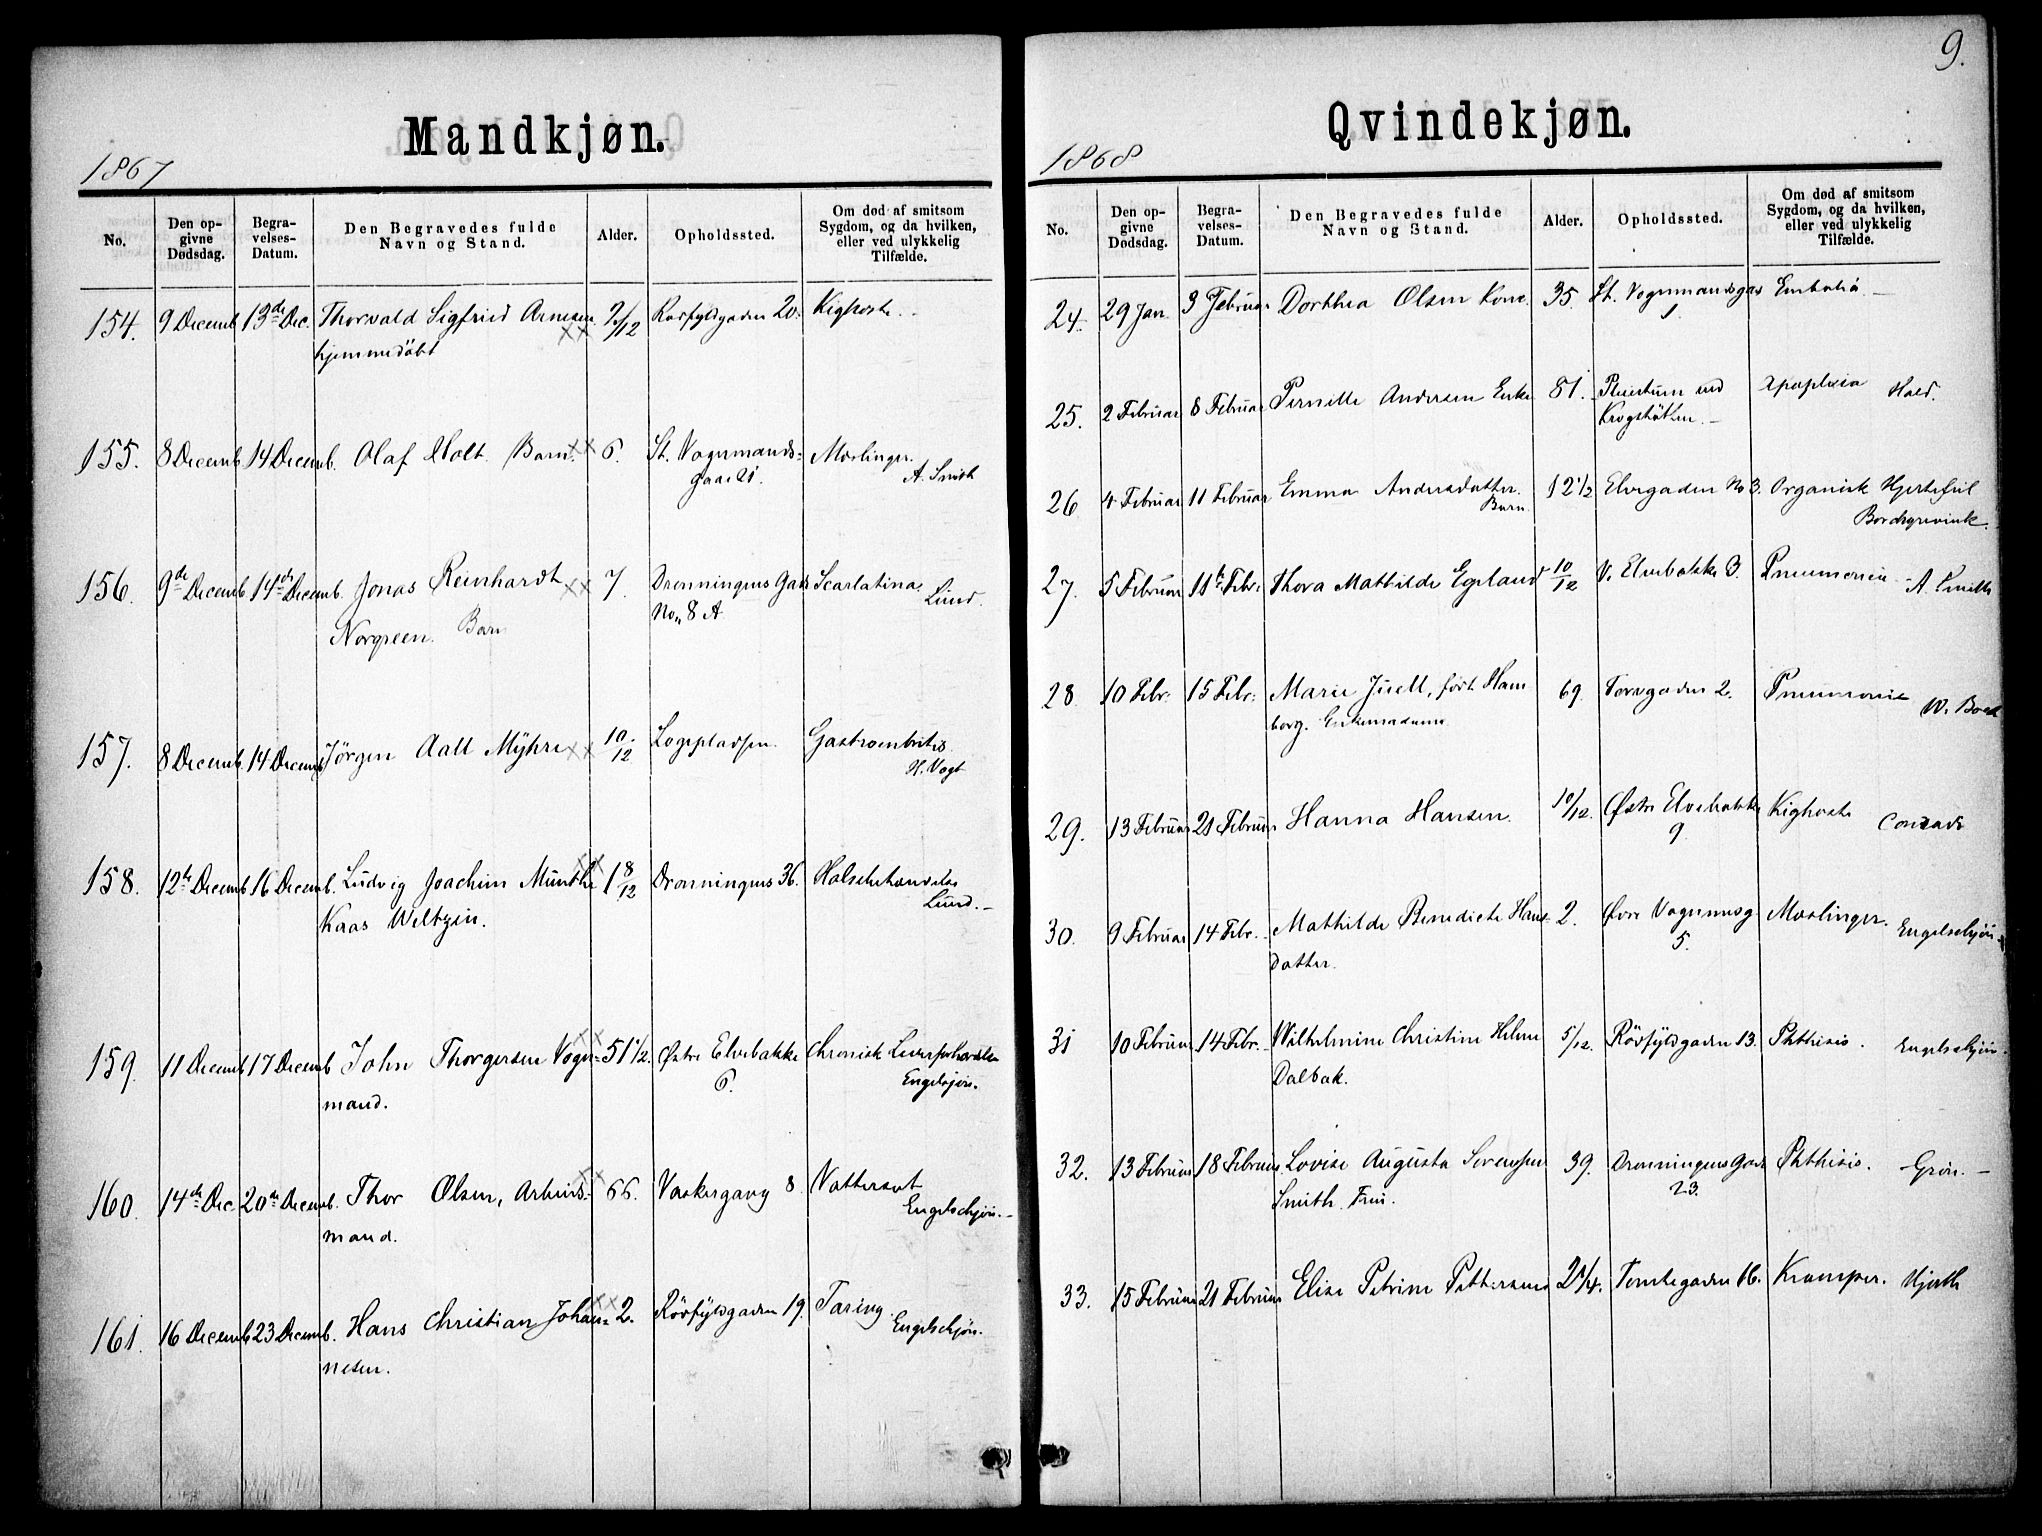 Mandkjøn.
1867
No.
Den op-
givne
Dødsdag.
Begra-
velses-
Datum.
Den Begravedes fulde
Navn og Stand.
Alder.
Opholdssted.
Om død af smitsom
Sygdom, og da hvilken,
eller ved ulykkelig
Tilfælde.
154. 9 Decemb 13de Dec. Thorvald Sigfried Arnesen 20. Kighoste.
hjemmedöbt
155. 8 Decemb 14 Decemb. Olaf Holt. Barn. 6. St. Vognmands- Mæslinger.
gade 21. A. Smith
156. 9de Decemb 14de Decemb. Jonas Reinhardt 7. Dronningens Gade Scarlatina.
Norgreen. Barn No. 8 A Lund.
157. 8 Decemb 14 Decemb Jörgen Aall Mÿhre 10/12 Logepladsen. Gastroenteritis.
H. Vogt
158. 12te Decemb 16 Decemb. Ludvig Joachim Munthe 1 8/12 Dronningens 36.
Kaas Weltzin. Lund.
159. 11 Decemb 17 Decemb John Thorgersen Vogn- 51 1/2. Østre Elvebakke Chronisk
mand. 6. Engelsjön.
160. 14de Dec. 20de Decemb. Thor Olsen, Arbeids- 66. Vaskergang 8. Vattersot
mand. Engelschjön.
161. 16 Decemb 23 Decemb. Hans Christian Johan- 2. Rövfyldgaden 19. Tæring.
nesen. Engelschjön.
9.
Qvindekjøn.
1868
No.
Den op-
givne
Dødsdag.
Begra-
velses-
Datum.
Den Begravedes fulde
Navn og Stand.
Alder.
Opholdssted.
Om død af smitsom
Sygdom, og da hvilken,
eller ved ulykkelig
Tilfælde.
24. 29 Jan. 3 Februar Dorthea Olsen Kone. 35. St. Vognmandsgad Embolia.
1
25. 2 Februar 8 Februar Pernille Andersen Enke 81. ved Apoplexia Hald.
Krogstötten.
26 4 Februar 11 Februar Emma Andersdatter. 12 1/2 Elvegaden No 3. Organisk Hjertefeil
Barn. Borchgrevink.
27. 5 Februar 11te Febr. Thora Mathilde Egeland 10/12 V. Elvebakke 3. Pneumonie. A. Smith
28. 10 Febr. 15 Febr. Marie Juell, født Ham 69. Torvgaden 2. Pneumonie W. Boeck
borg. Enkemadame
29. 13 Februar 21 Februar Hanna Hansen. 10/12. Østre Elvebakke Kighoste Conradi
9
30. 9 Februar 14 Febr. Mathilde Benedicte Hans 2. Øvre Vognmsg Mæslinger. Engelschjön.
datter. 5.
31 10 Februar 14 Febr. Wilhelmine Christine Helene 5/12. Rövfyldgaden 13. Phthisis. Engelschjön.
Dalbak.
32. 13 Februar 18 Februar Lovise Augusta Sörensen 39. Dronningens Gade Phthisis. Grön.
Smith. Frue. 23.
33. 15 Februar 21 Februar Elise Petrine Pettersen 2 1/4. Tomtegaden 16. Kramper. Hjorth